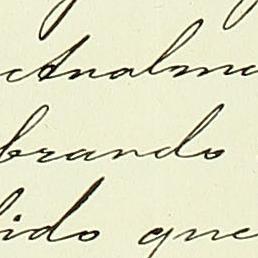 ctnalme
brando
bido que